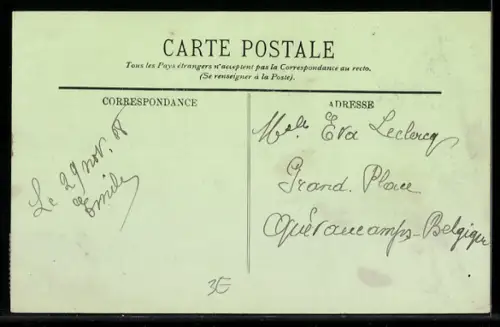 CARTE POSTALE
Tous les Pays étrangers n'acceptent pas la Correspondance au recto.
(Se renseigner à la Poste).
CORRESPONDANCE
Le 29 nov. 08
Emile
ADRESSE
Melle Eva Leclercq
Grand. Place
Quévaucamps-Belgique
3E